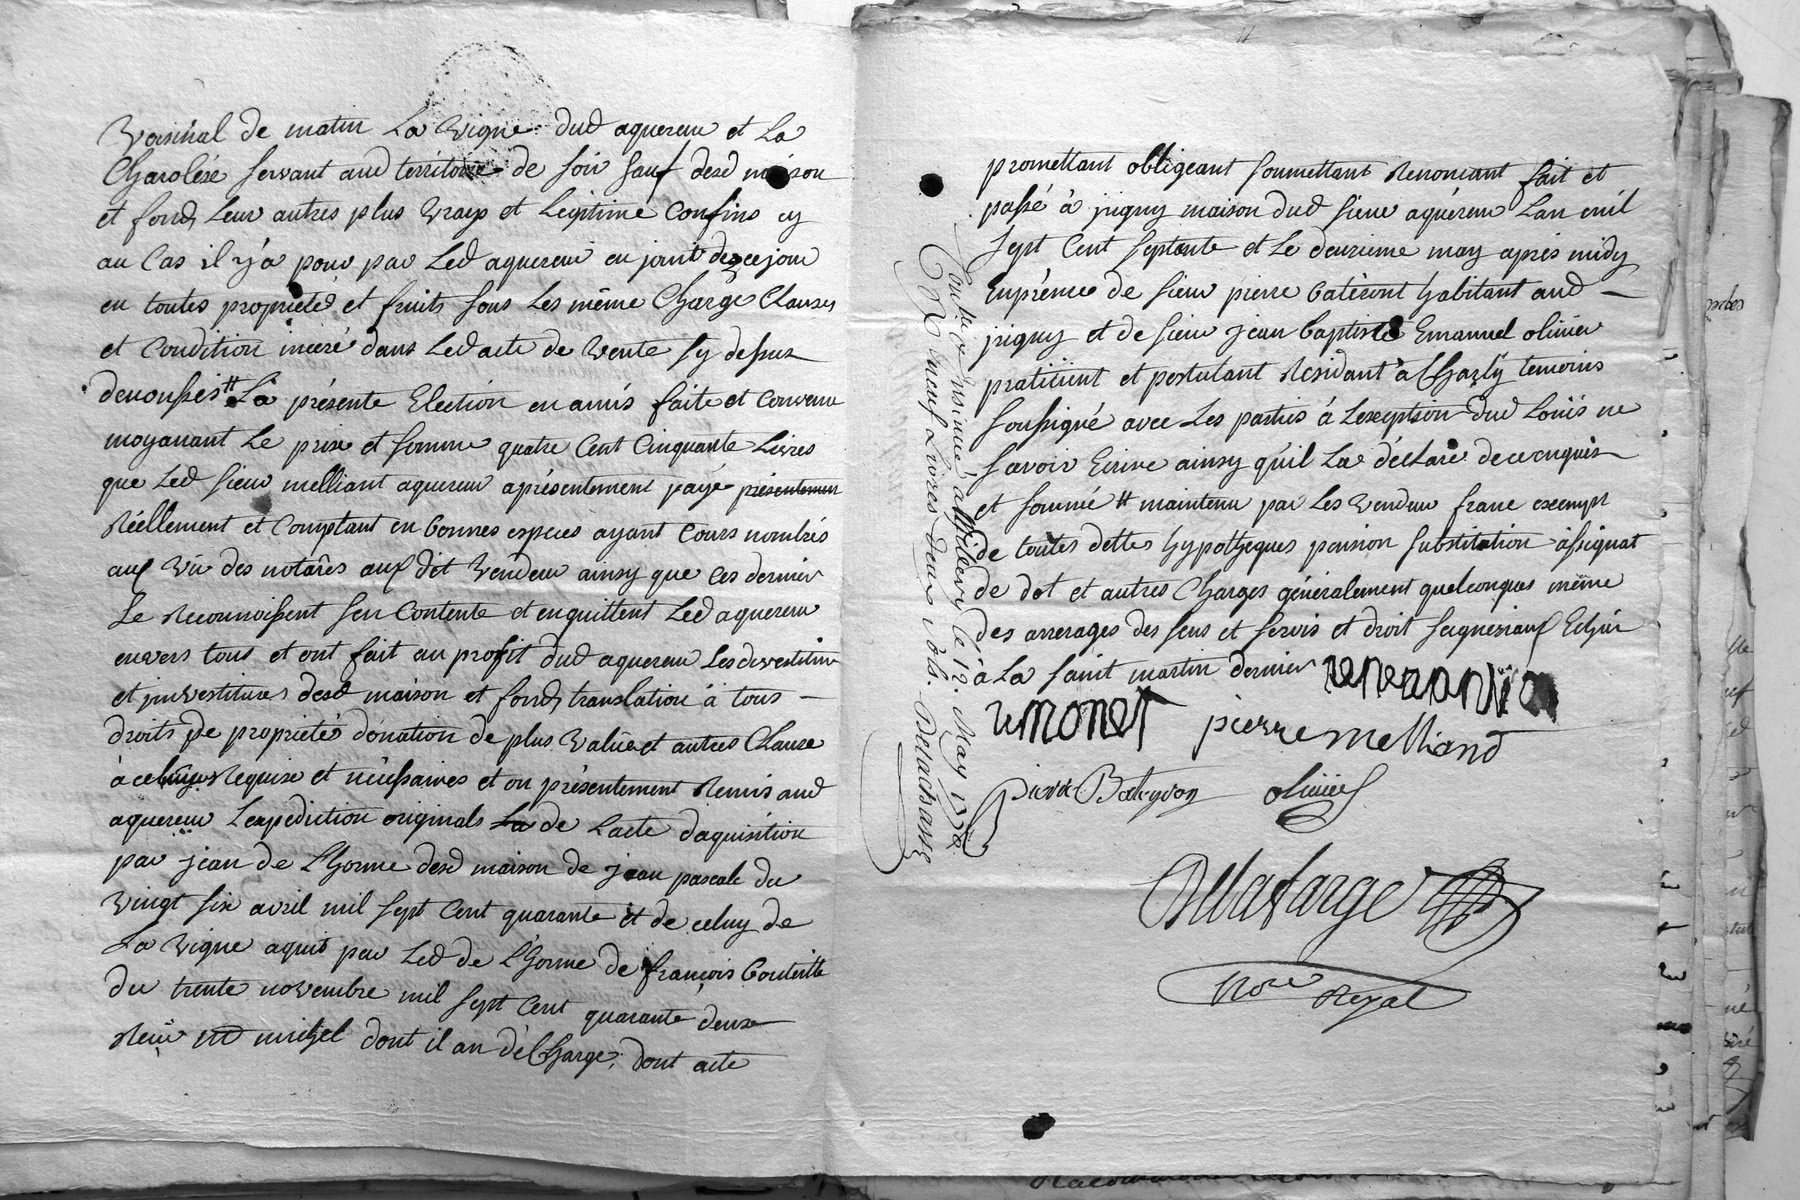 Voisinal de matin La Vigne dud aquereur et La
Charolese servant aud territoire de soir sauf desd maison
et fonds Leur autres plus Vrays et Legitime Confins sy
au Cas il y a pour par Led aquereur en jouir dez ce jour
en toutes propriétés et fruits sous Les même Charge Clauses
et Condition inseré dans Led acte de Vente sy dessus
denoncées # La présente Election en amis faite et Convenu
moyanant Le prix et somme quatre Cent Cinquante Livres
que Led sieur melliant aquereur aprésentement payé presentement
Réellement et Comptant en bonnes especes ayant Cours nombrés
aux Vu des notaires aux dit Vendeur ainsy que Ces dernier
Le Reconnoissent sen Contente et enquittent Led aquereur
envers tous et ont fait au profit dud aquereur Les devestiture
et jnvestitures desd maison et fonds translation à tous
droits de propriétés donation de plus Value et autres Clause
à Requise et nécessaires et on présentement Remis aud
aquereur Lexpedition originals La de Lacte daquisition
par jean de L'horme desd maison de jean pascale du
Vingt six avril mil sept Cent quarante et de celuy de
La Vigne aquis par Led de L'horme de françois bouteille
du trente novembre mil sept Cent quarante deux
Reçu michel dont il an décharge, dont acte
promettant obligeant soumettant Renoncant fait et
passé à jrigny maison dud sieur aquéreur Lan mil
sept Cent septante et Le deuxieme may après midy
Enprésence de sieur pierre batéront habitant aud
jrigny et de sieur jean baptiste Emanuel olivier
praticient et postulant Résidant à Charly temoins
soussigné avec Les parties à Lexception dud Louis ne
scavoir Ecrire ainsy qu'il La déclaré de ce enquis
et sommé # maintenu par Les Vendeur franc exempt
de toutes dettes hypotheques pension substitution assignat
de dot et autres Charges généralement quelconques même
des arrerages des sens et servis et droit seigneuriaux Echus
à La saint martin dernier
remonet pierre melliand
Pierre Bateyron olivier
Delafarge
Nore Royal
Con.lle & insinué à Millery le 12. May 1770
R neuf Livres deux sols. Delachasse